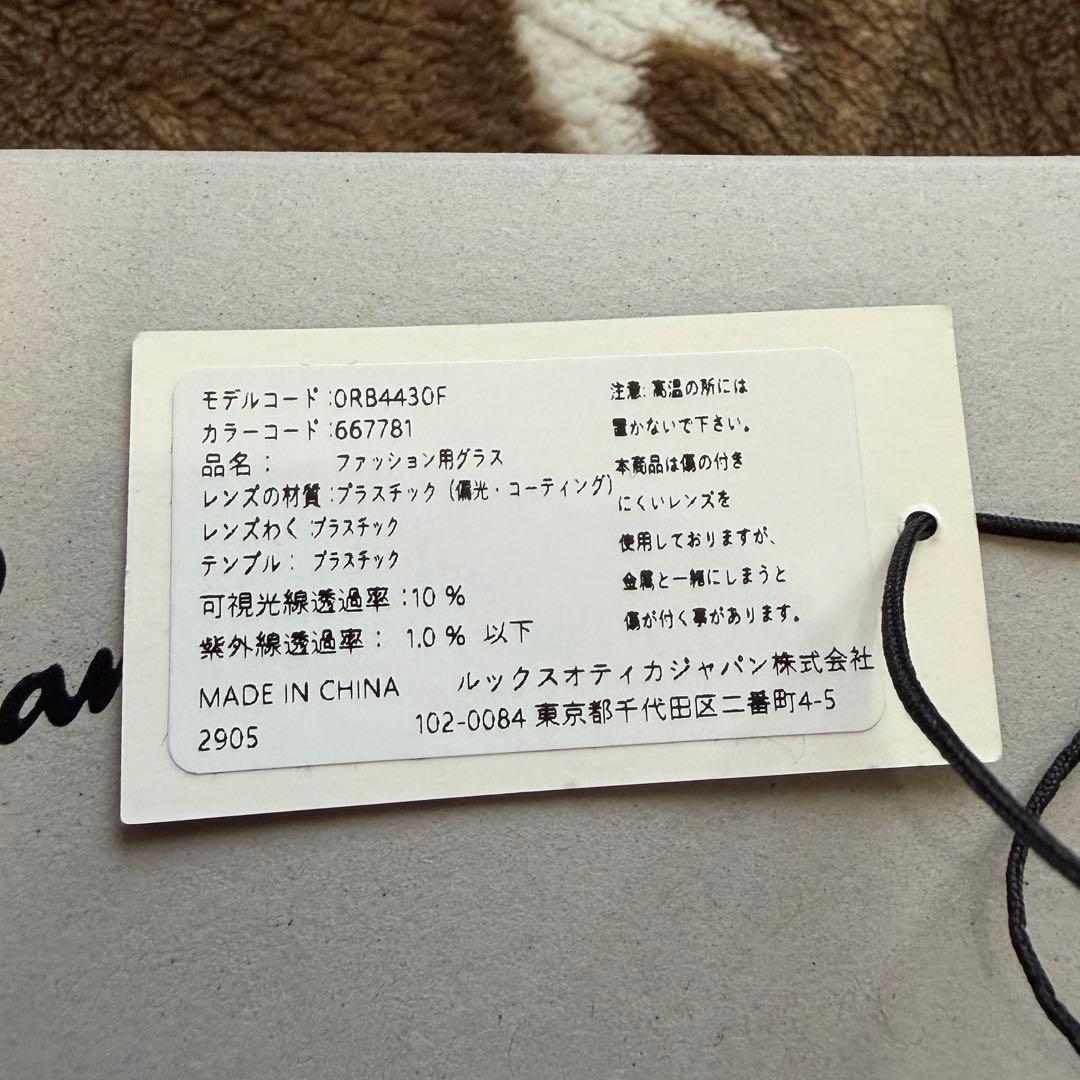 モデルコード:0RB4430F
カラーコード:667781
品名: ファッション用グラス
レンズの材質:プラスチック(偏光・コーティング)
レンズわく:プラスチック
テンプル: プラスチック
可視光線透過率:10 %
紫外線透過率: 1.0 % 以下
MADE IN CHINA
2905
注意:高温の所には
置かないで下さい。
本商品は傷の付き
にくいレンズを
使用しておりますが、
金属と一緒にしまうと
傷が付く事があります。
ルックスオティカジャパン株式会社
102-0084 東京都千代田区二番町4-5